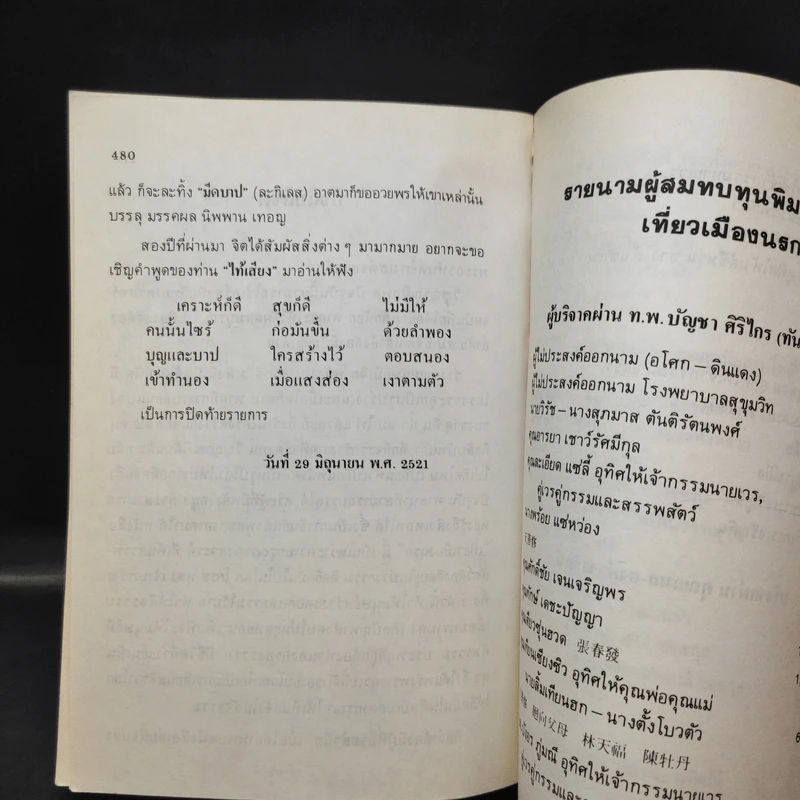 480
แล้ว ก็จะละทิ้ง "มีดบาป" (ละกิเลส) อาตมาก็ขออวยพรให้เขาเหล่านั้น
บรรลุ มรรคผล นิพพาน เทอญ
สองปีที่ผ่านมา จิตได้สัมผัสสิ่งต่าง ๆ มามากมาย อยากจะขอ
เชิญคำพูดของท่าน "ไท้เสียง" มาอ่านให้ฟัง
เคราะห์ก็ดี สุขก็ดี ไม่มีให้
คนนั้นไซร้ ก่อมันขึ้น ด้วยลำพอง
บุญและบาป ใครสร้างไว้ ตอบสนอง
เข้าทำนอง เมื่อแสงส่อง เงาตามตัว
เป็นการปิดท้ายรายการ
วันที่ 29 มิถุนายน พ.ศ. 2521
รายนามผู้สมทบทุนพิม
เที่ยวเมืองนรก
ผู้บริจาคผ่าน ท.พ. บัญชา ศิริไกร (ทัน
ผู้ไม่ประสงค์ออกนาม (อโศก – ดินแดง)
ผู้ไม่ประสงค์ออกนาม โรงพยาบาลสุขุมวิท
นายวิรัช – นางสุภมาส ตันติรัตนพงศ์
คุณอารยา เชาว์รัศมีกุล
คุณละเอียด แซ่ลี้ อุทิศให้เจ้ากรรมนายเวร,
คู่เวรคู่กรรมและสรรพสัตว์
นางพร้อย แซ่หว่อง
คุณศักดิ์ชัย เจนเจริญพร
เดชะปัญญา
張春發
อุทิศให้คุณพ่อคุณแม่
นายลิ้มเทียนฮก – นางตั้งโบวตัว
廻向父母 林天福 陳牡丹
ภู่มณี อุทิศให้เจ้ากรรมนายเวร
คู่เวรคู่กรรมและ